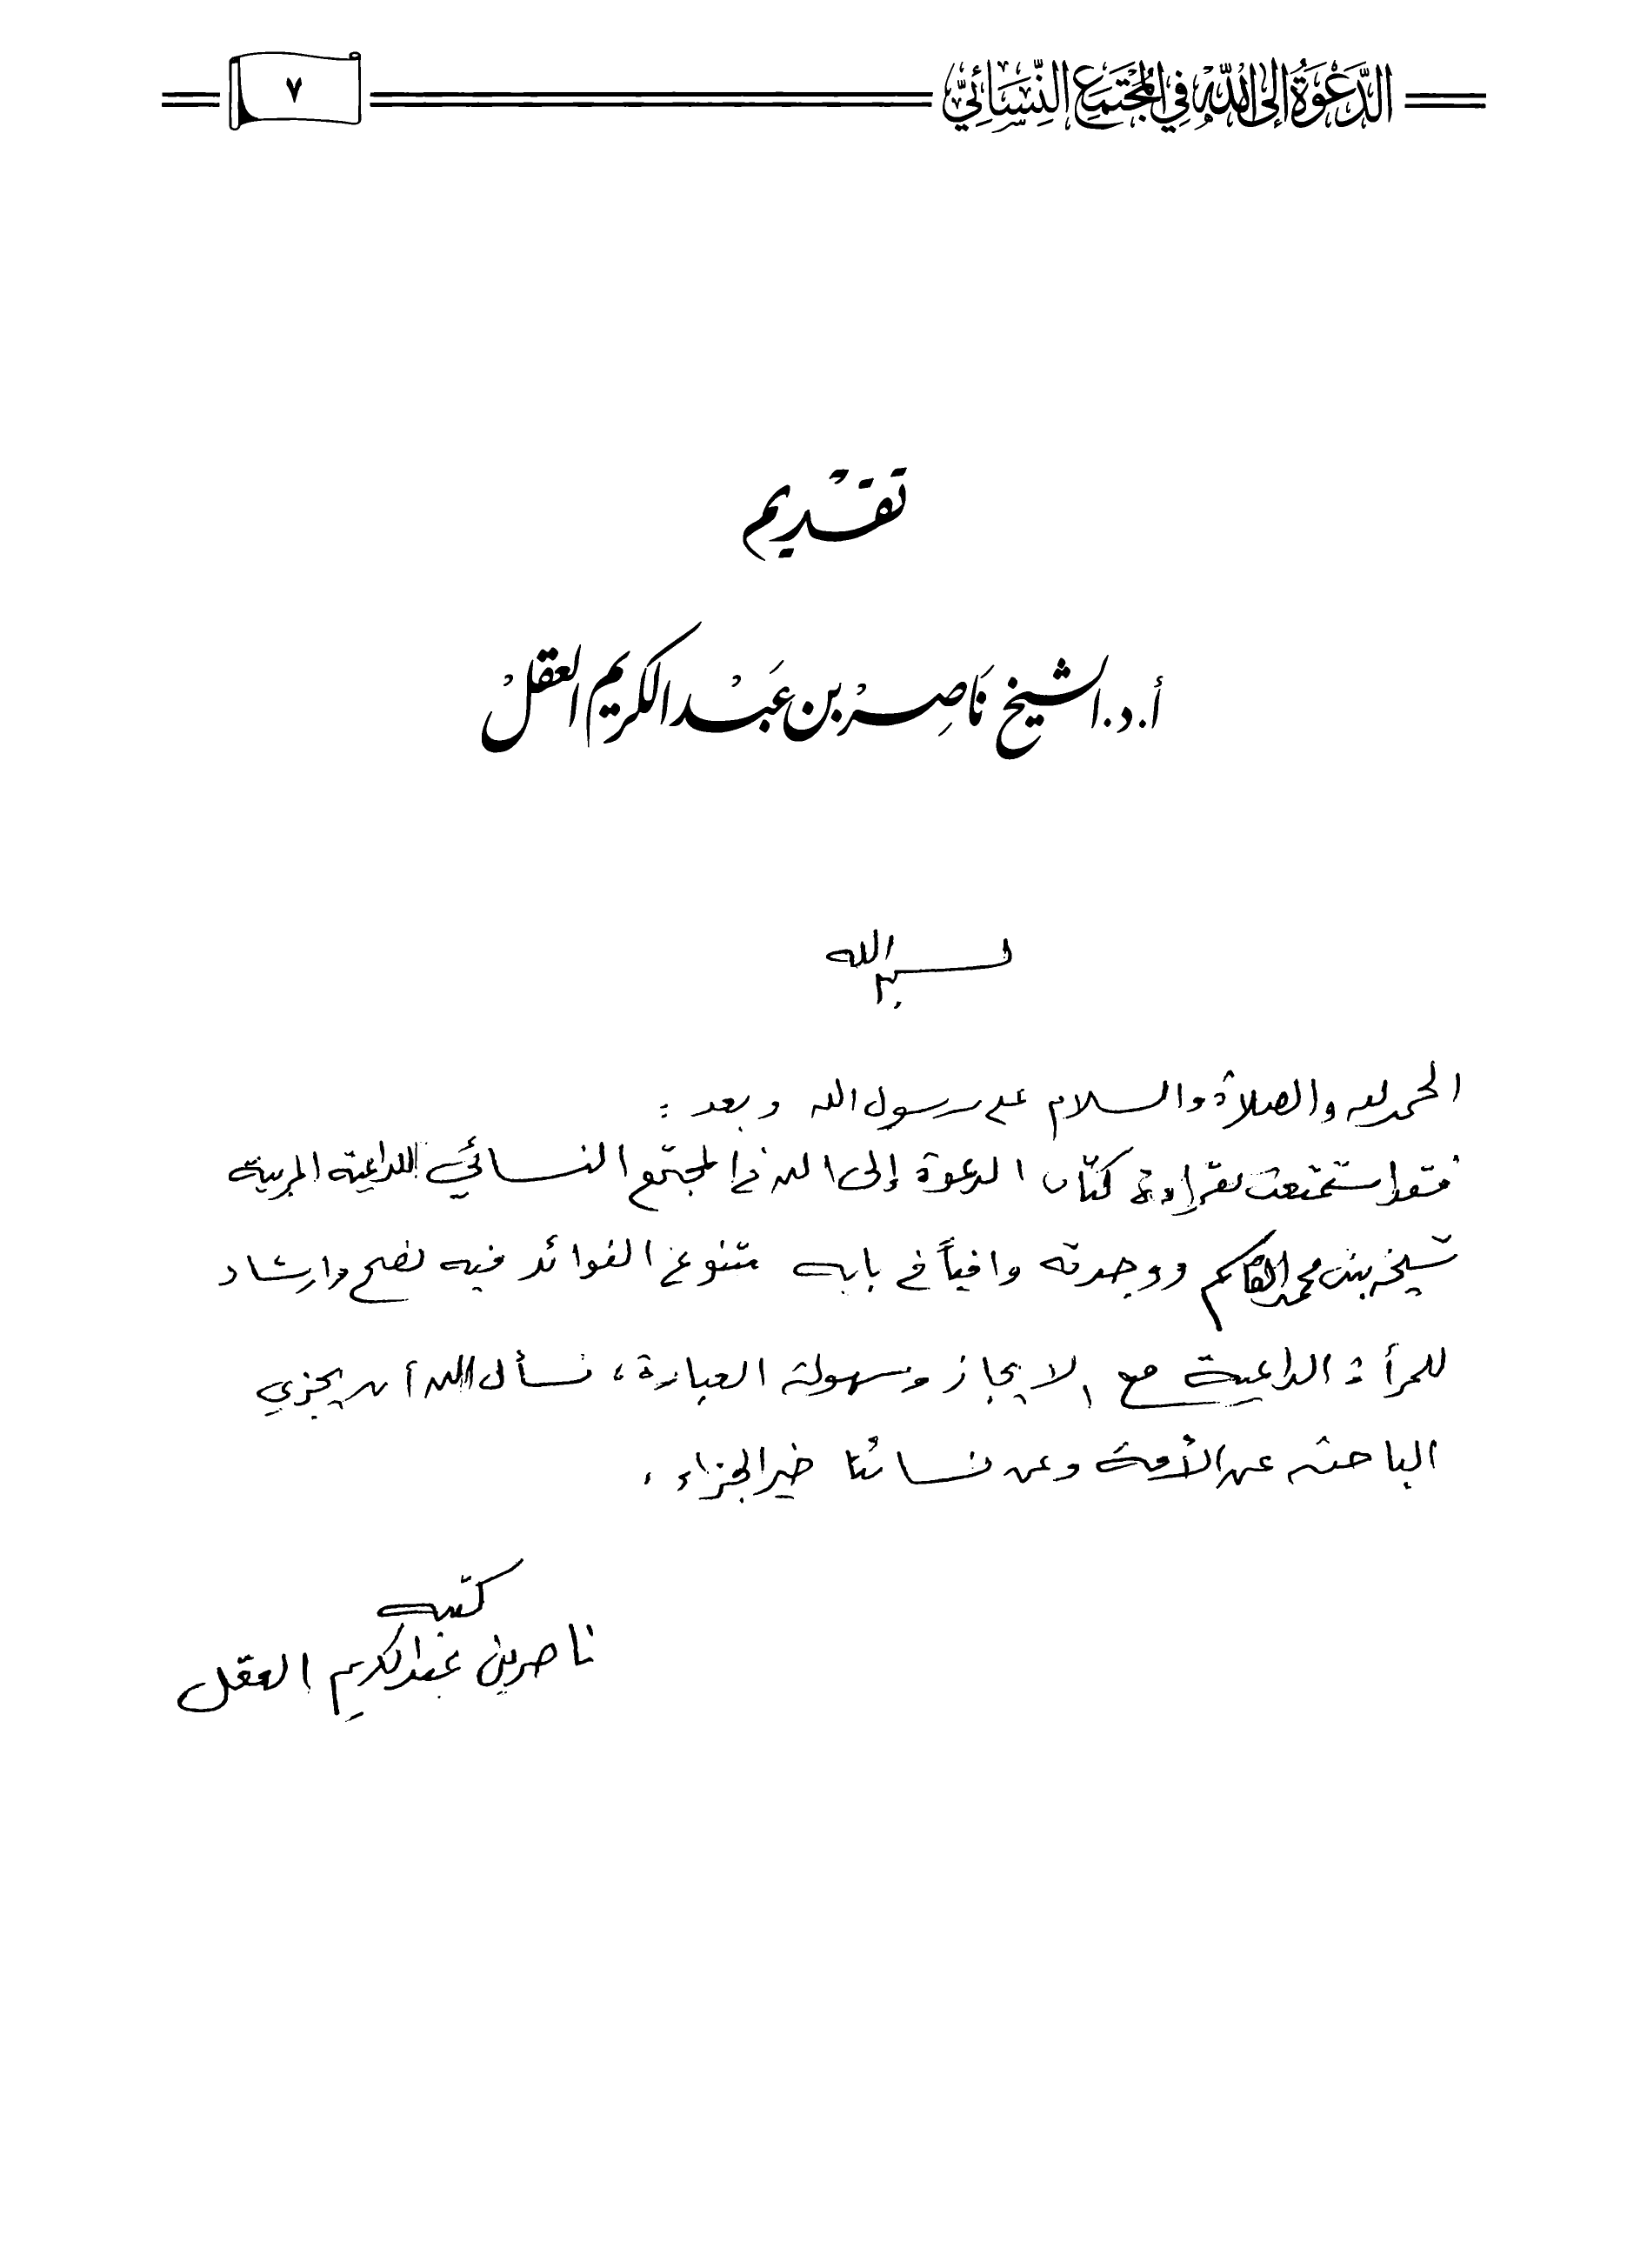 الدَّعْوَةُ إلى اللهِ فِي المُجْتَمَعِ النِّسَائِيِّ
٧
تقديم
أ.د. الشيخ نَاصِرْ بن عَبْد الكريم العقلْ
بسم الله
الحمد لله والصلاة والسلام على رسول الله وبعد :
فقد استمتعت بقراءة كتاب الدعوة إلى الله في المجتمع النسائي للداعية المربية
شيخه بنت محمد القاسم ووجدته وافياً في بابه متنوع الفوائد فيه نصح وارشاد
للمرأة الداعية مع الايجاز وسهولة العبارة، نسأل الله أن يجزي
الباحثة عن الأمة وعن نسائنا خير الجزاء .
كتبه
ناصر بن عبد الكريم العقل